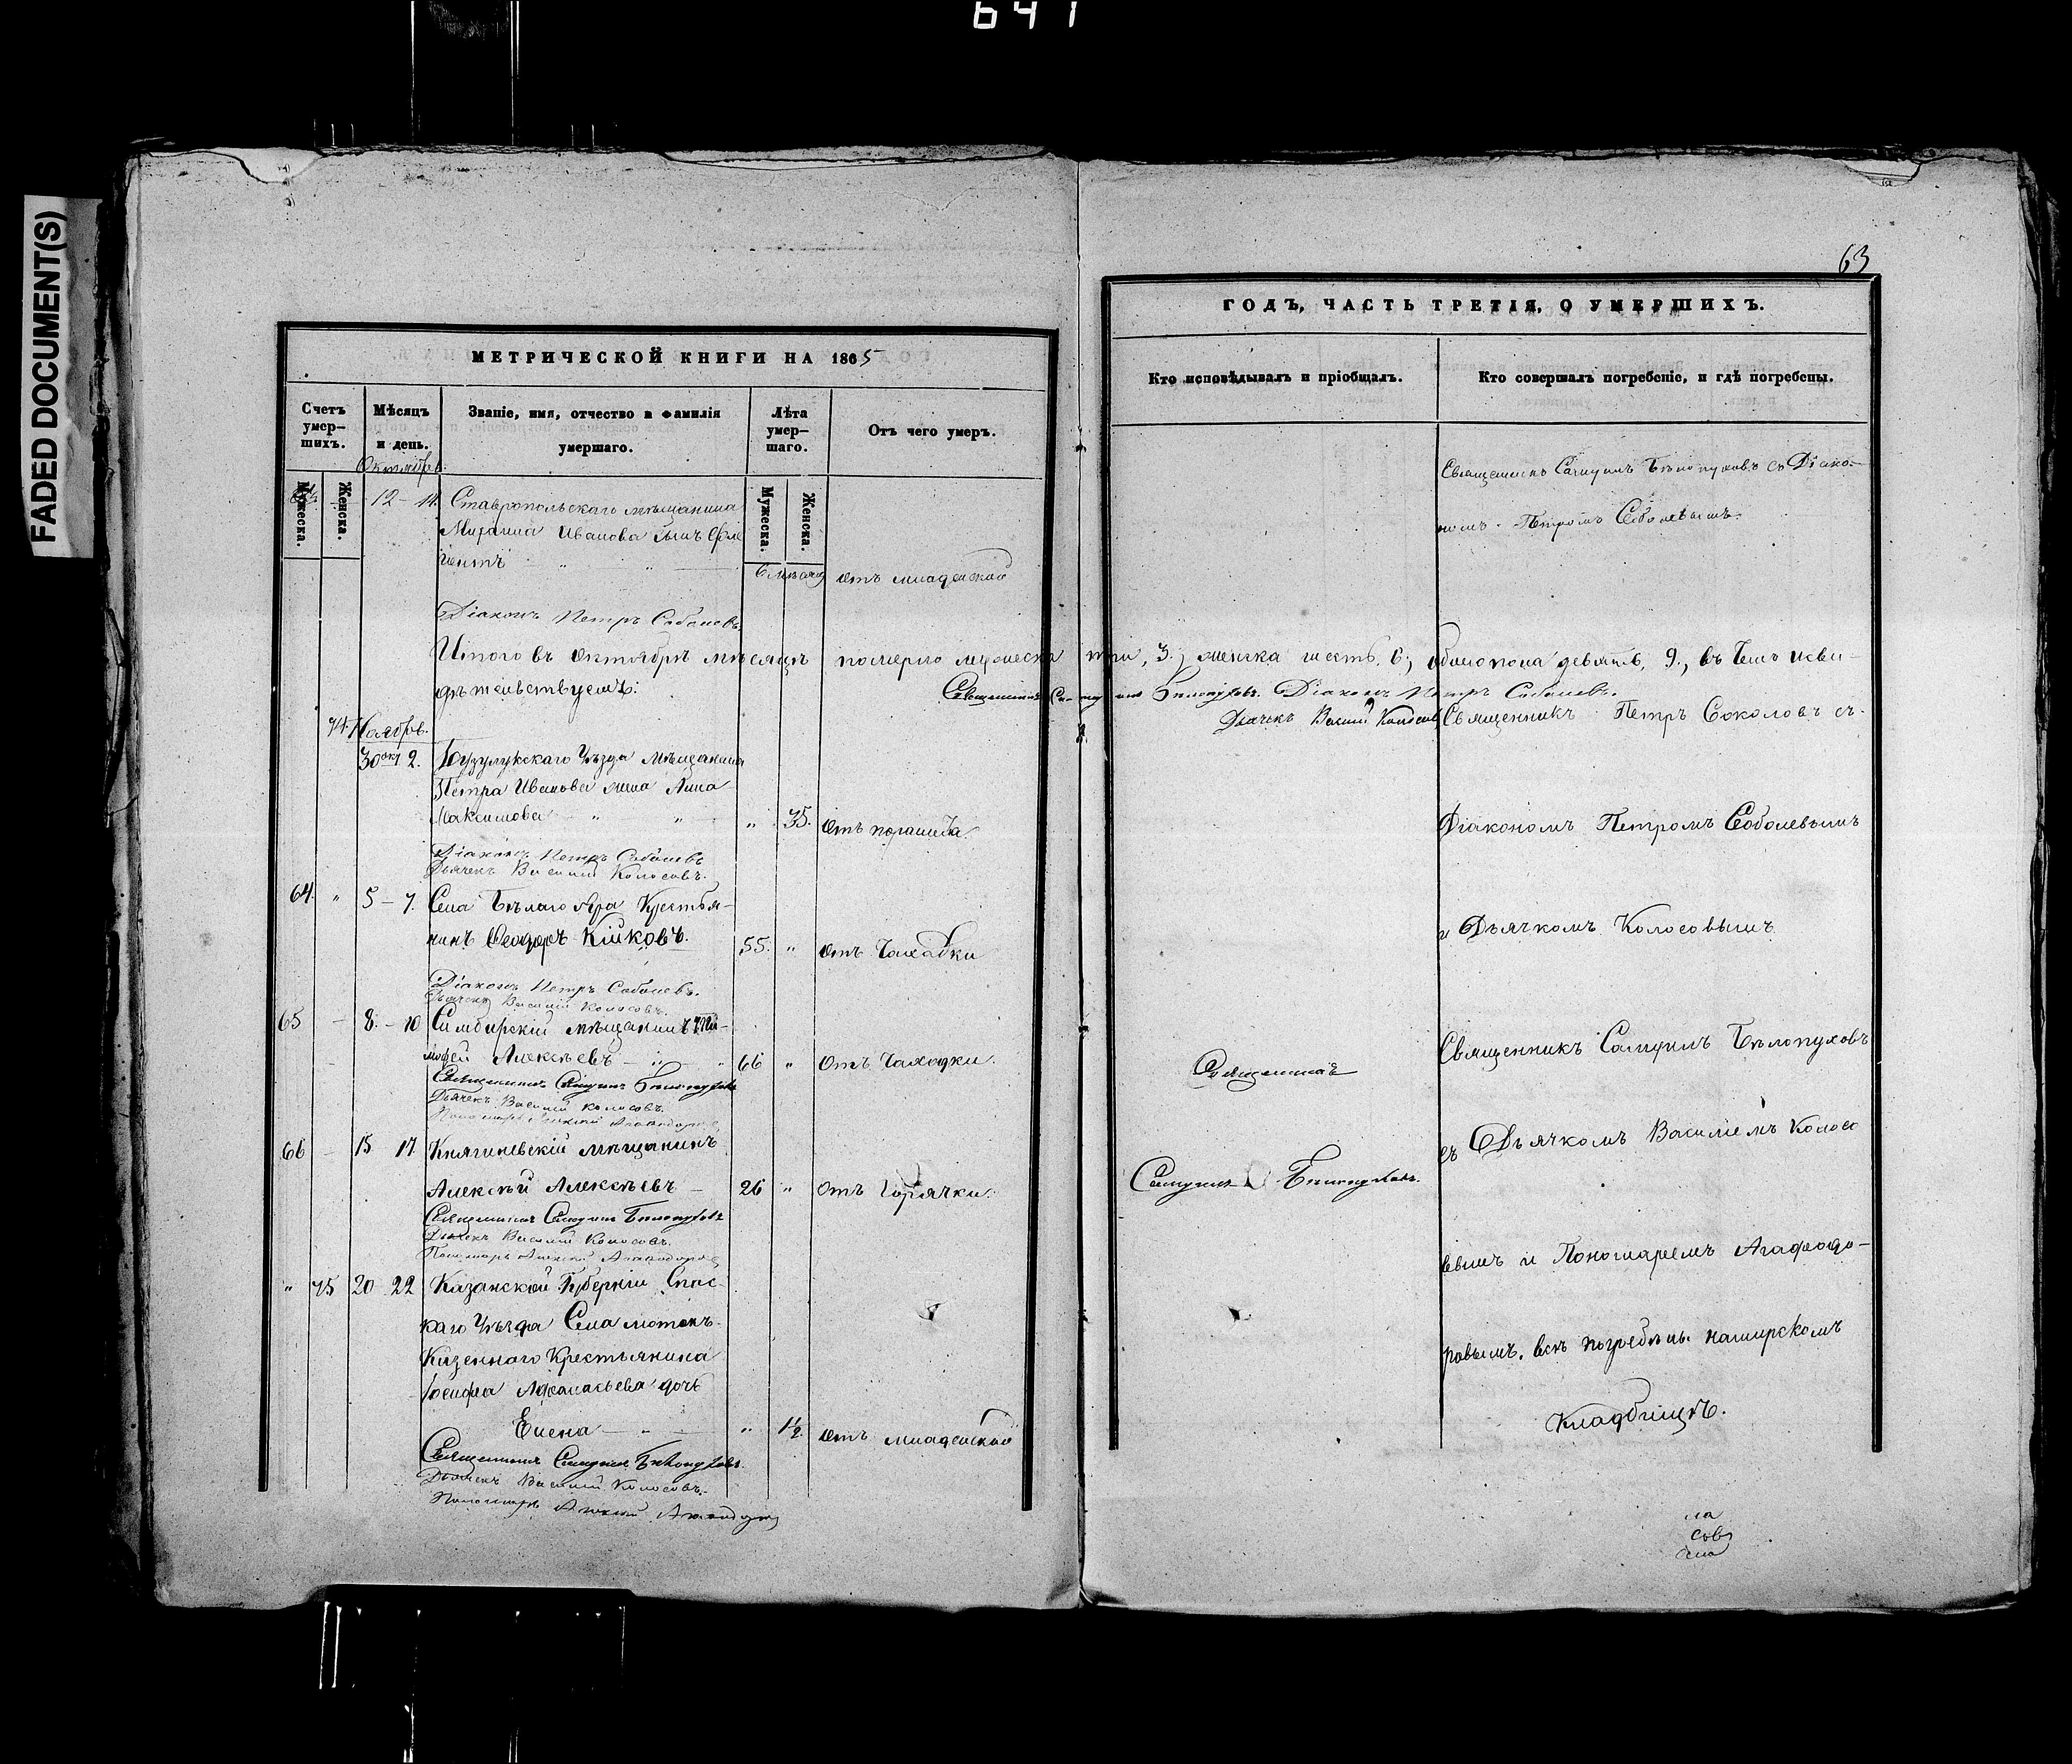 641
FADED DOCUMENT(S)
МЕТРИЧЕСКОЙ КНИГИ НА 1865
Счетъ умер-шихъ.
Мужеска.
Женска.
Мѣсяцъ и день.
Званіе, имя, отчество и фамилія умершаго.
Лѣта умер-шаго.
Мужеска.
Женска.
Отъ чего умеръ.
Октябрь.
12 – 14
Ставропольскаго мѣщанина
Михаила Иванова сынъ
6 мѣсяц
отъ младенской
Діаконъ Петръ Соболевъ.
Итого въ Октябрѣ мѣсяцѣ померло мужеска три, 3., женска шесть, 6., обоего пола девять, 9., въ чемъ и сви-
дѣтельствуемъ:
Священникъ Самуилъ Бѣлопуховъ. Діаконъ Петръ Соболевъ.
Дьячекъ Василій Колосовъ
74. Ноябрь.
30 окт 2.
Бузулукскаго Уѣзда Мѣщанина
Петра Иванова жена Анна
Максимова " "
" 35.
Діаконъ Петръ Соболевъ
Дьячекъ Василій Колосовъ.
64. " 5 – 7.
Села Бѣлаго Яра Крестья-
нинъ Ѳеодоръ Кійковъ.
55. "
отъ Чахотки
Діаконъ Петръ Соболевъ.
Дьячекъ Василій Колосовъ.
65 – 8. – 10
Симбирскій мѣщанинъ Ти-
моѳей Алексѣевъ
66 "
Отъ Чахотки.
Священникъ Самуилъ Бѣлопуховъ
Дьячекъ Василій Колосовъ.
66 – 15 17.
Княгиневскій мѣщанинъ
Алексѣй Алексѣевъ –
26 "
Отъ Горячки.
Священникъ Самуилъ Бѣлопуховъ
Дьячекъ Василій Колосовъ.
Пономарь Алексѣй Агаѳодоровъ
" 75 20 22
Казанской Губерніи Спас-
каго Уѣзда Села
Казеннаго Крестьянина
Іосифа Аѳанасьева дочь
Елена – " –
" 1½.
отъ младенской
Священникъ Самуилъ Бѣлопуховъ.
Дьячекъ Василій Колосовъ.
Пономарь Алексѣй Агаѳодоровъ
63
ГОДЪ, ЧАСТЬ ТРЕТІЯ, О УМЕРШИХЪ.
Кто исповѣдывалъ и пріобщалъ.
Кто совершалъ погребеніе, и гдѣ погребены.
Священникъ Самуилъ Бѣлопуховъ съ Діако-
номъ Петромъ Соболевымъ.
Священникъ Петръ Соколовъ съ
Діакономъ Петромъ Соболевымъ
и Дьячкомъ Колосовымъ
Священникъ
Самуилъ Бѣлопуховъ.
Священникъ Самуилъ Бѣлопуховъ
съ Дьячкомъ Василіемъ Колосо
вымъ и Пономаремъ Агаѳодо-
ровымъ. всѣ погребены на мірскомъ
Кладбищѣ.